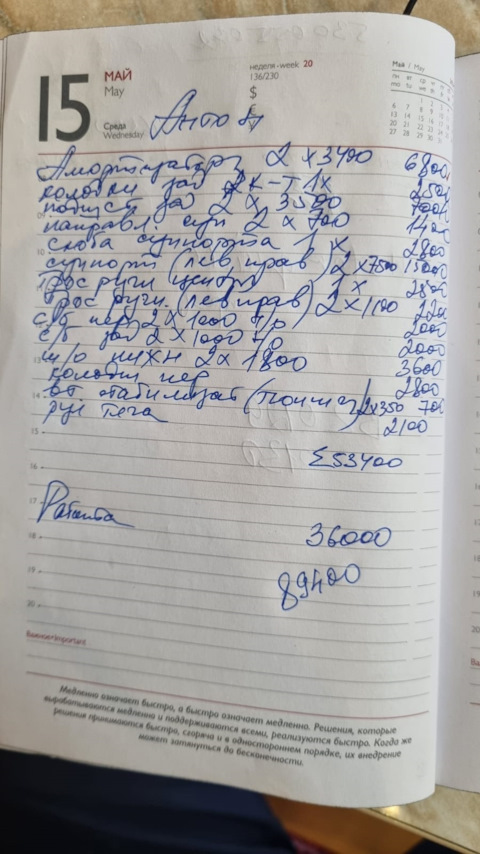 15
МАЙ
May
Среда
Wednesday
неделя•week 20
136/230
$
€
Май / May
Антон
Амортизаторы 2 x 3400 6800
колодки зад 2к-т 1х 2500
зад 2 x 3500 7000
направл. суп 2 x 700 1400
скоба суппорта 1 x 2800
суппорт (лев прав) 2x7500 15000
Трос ручн центр 1 x 2800
Трос ручн. (лев прав) 2 x 1100 2200
с/б пер 2 x 1000 т/о 2000
с/б зад 2 x 1000 т/о 2000
ш/о нижн 2 x 1800 3600
колодки пер 2800
вт. стабилизат 2x350 700
2100
Σ53400
Работа
36000
89400
14
15
16
17
18
19
20
Важно•Important
Медленно означает быстро, а быстро означает медленно. Решения, которые
вырабатываются медленно и поддерживаются всеми, реализуются быстро. Когда же
решения принимаются быстро, сгоряча и в одностороннем порядке, их внедрение
может затянуться до бесконечности.